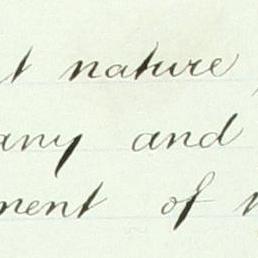 nature
any and
ment of